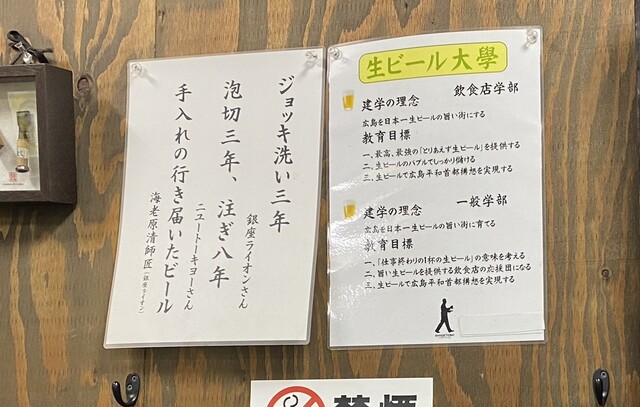 ジョッキ洗い三年
銀座ライオンさん
泡切三年、注ぎ八年
ニュートーキヨーさん
手入れの行き届いたビール
海老原清師匠(銀座ライオン)
生ビール大學
飲食店学部
建学の理念
広島を日本一生ビールの旨い街にする
教育目標
一、最高、最強の「とりあえず生ビール」を提供する
二、生ビールのバブルでしっかり儲ける
三、生ビールで広島平和首都構想を実現する
一般学部
建学の理念
広島を日本一生ビールの旨い街に育てる
教育目標
一、「仕事終わりの1杯の生ビール」の意味を考える
二、旨い生ビールを提供する飲食店の応援団になる
三、生ビールで広島平和首都構想を実現する
禁煙